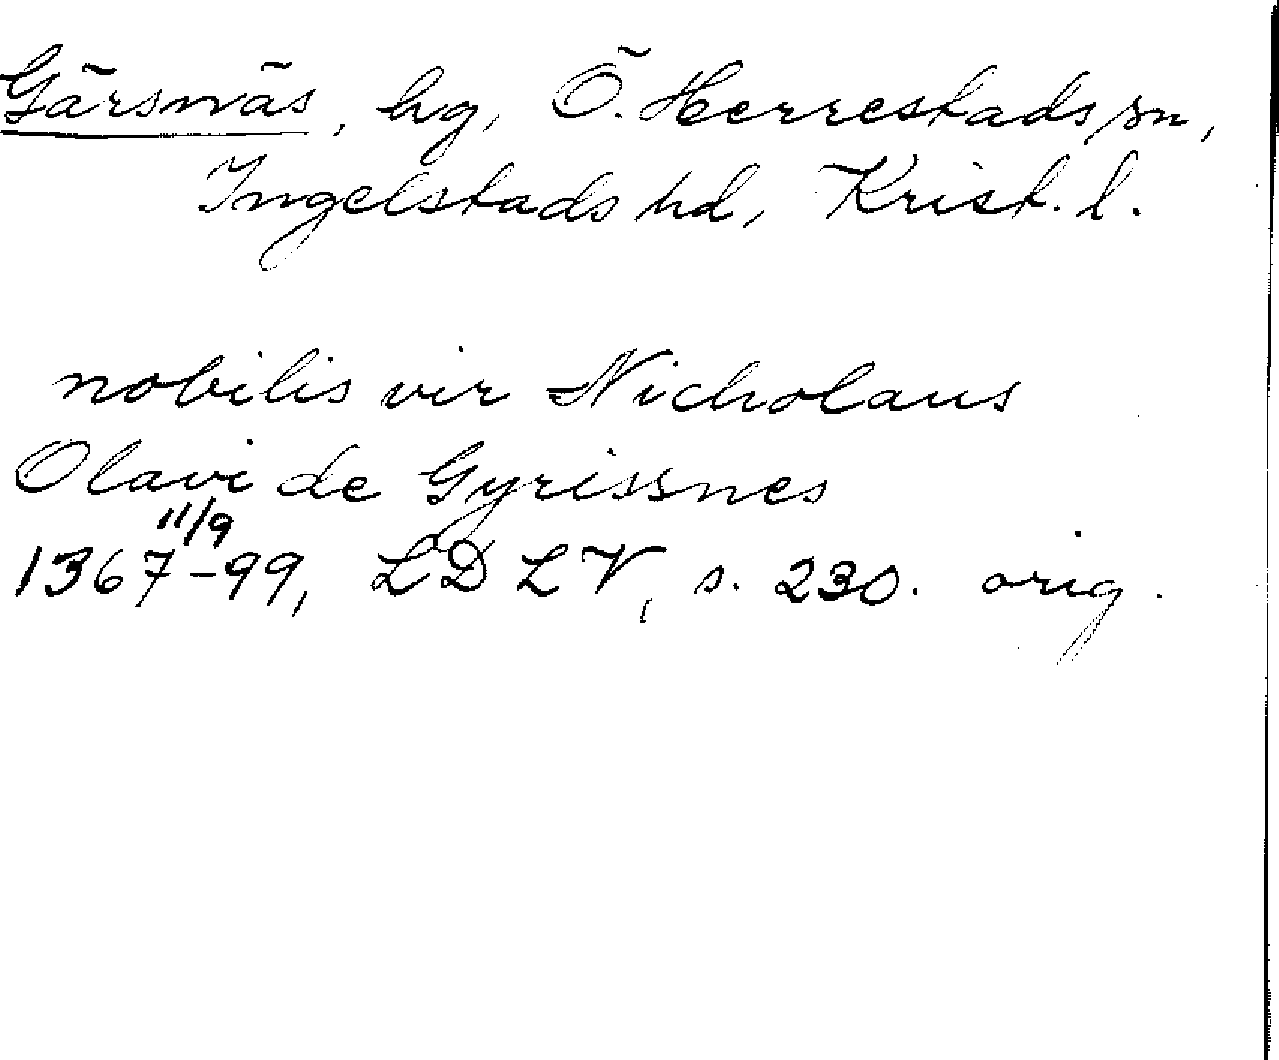 Gärsnäs, hg, Ö. Herrestads sn,
Ingelstads hd, Krist. l.
nobilis vir Nicholaus
Olavi de Gyrissnes
11/9
1367-99, LD LV, s. 230. orig.